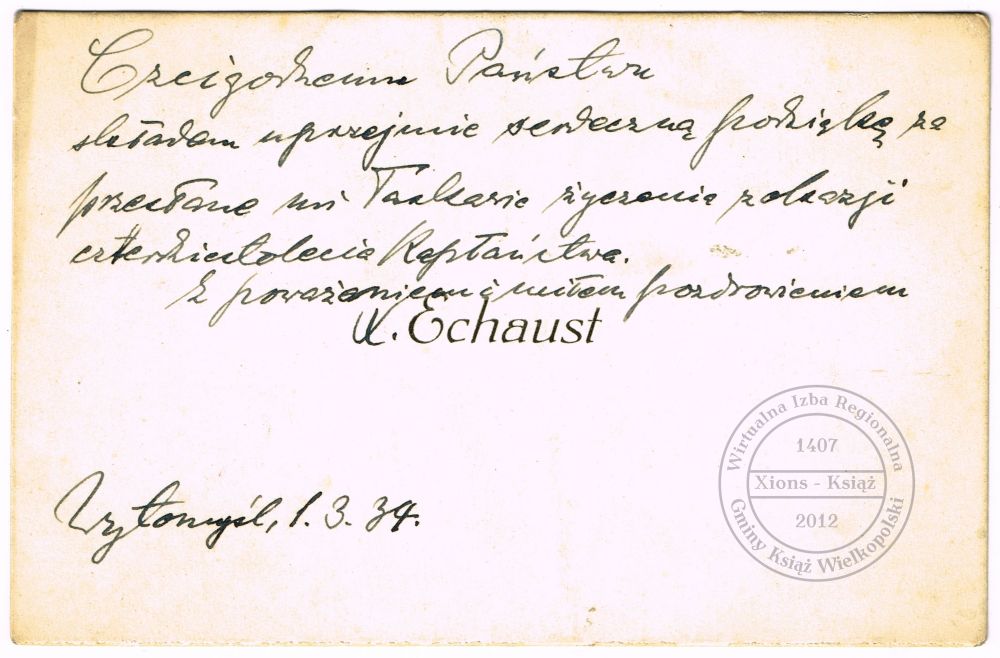 Czcigodnemu Państwu
składam uprzejmie serdeczną podziękę za
przesłane mi łaskawie życzenia z okazji
czterdziestolecia Kapłaństwa.
Z poważaniem i miłem pozdrowieniem
X. Echaust
Wytomyśl, 1. 3. 34.
Wirtualna Izba Regionalna
1407
Xions - Książ
2012
Gminy Książ Wielkopolski